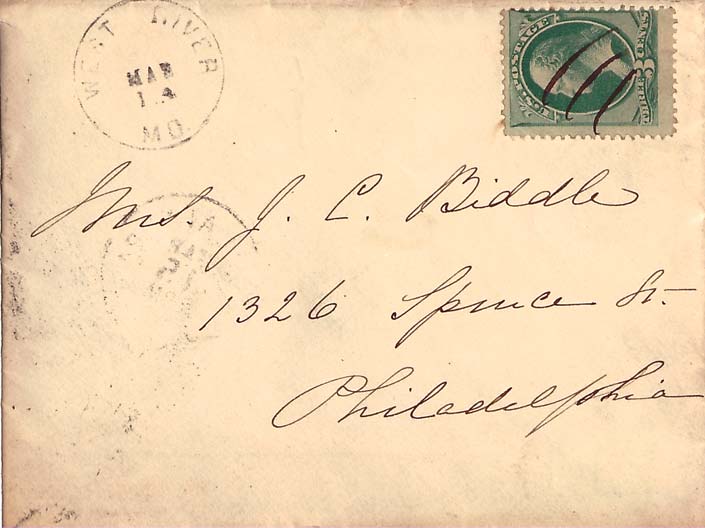 WEST RIVER
MAR
MD.
U.S. POSTAGE
3
Mrs. J. C. Biddle
1326 Spruce St.
Philadelphia